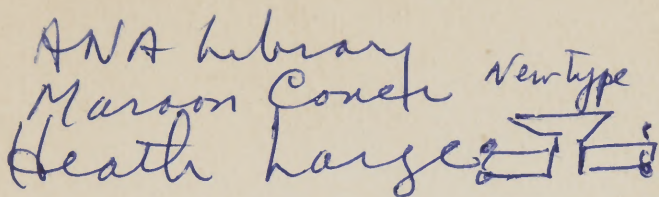 ANA Library
Maroon Conch
New type
Heath Large